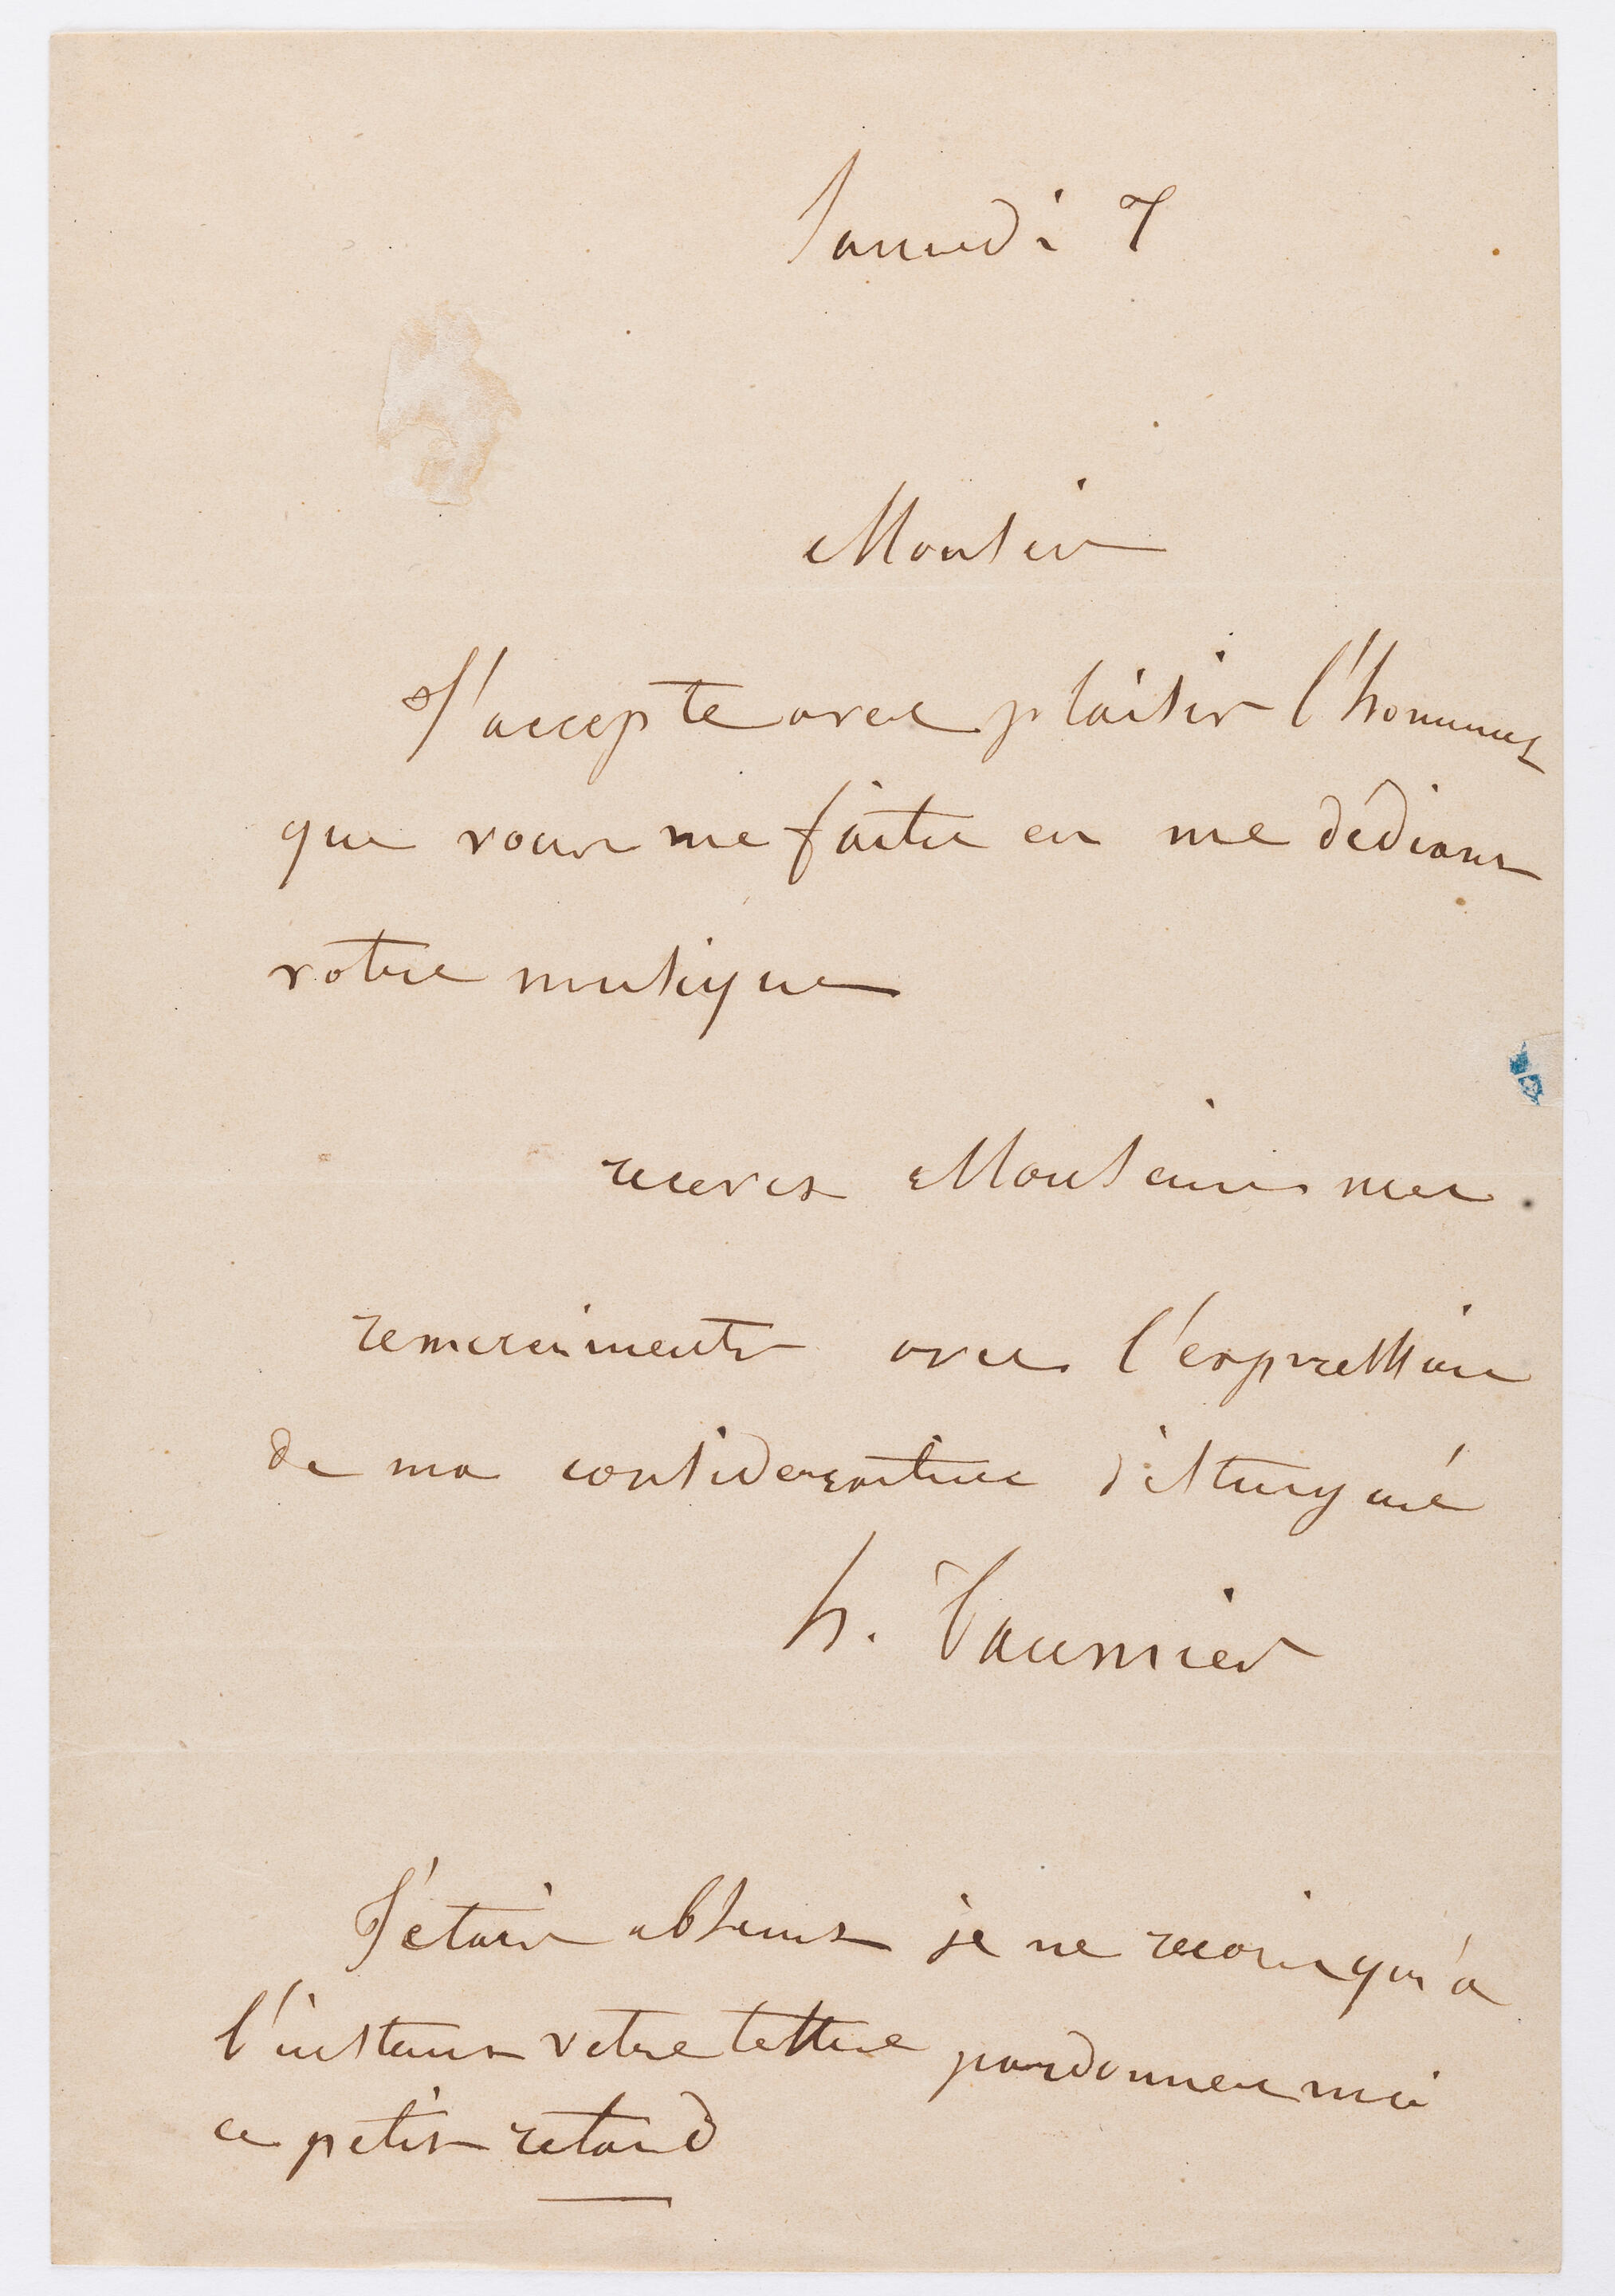 Samedi 7
Monsieur
J'accepte avec plaisir l'honneur
que vous me faites en me dédiant
votre musique
recevez Monsieur mes
remerciments avec l'expression
de ma consideration distingué
h. Daumier
J'étais absent je ne recois qu'a
l'instant votre lettre pardonnez moi
ce petit retard